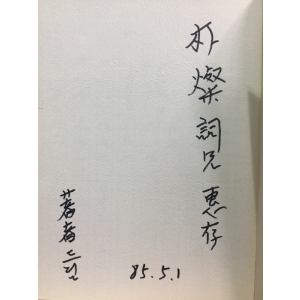 朴燦詞兄惠存
著者드림
85.5.1